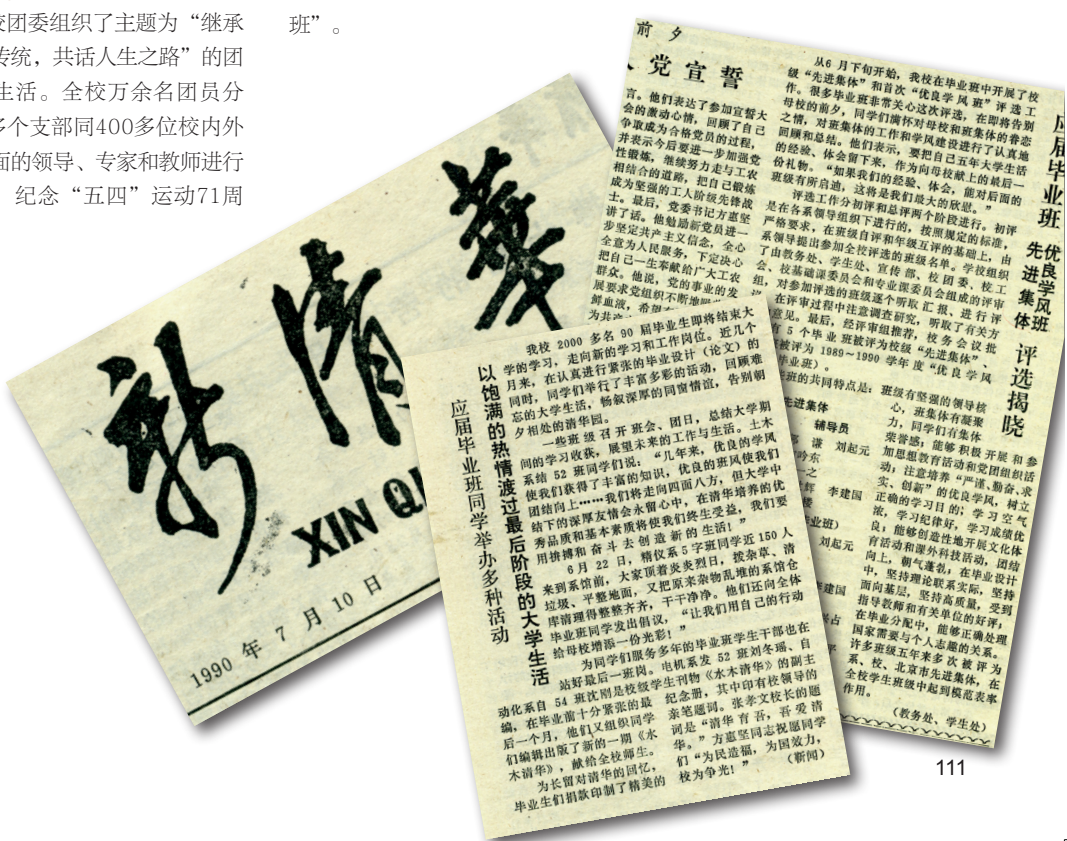 校团委组织了主题为“继承
传统，共话人生之路”的团
生活。全校万余名团员分
多个支部同400多位校内外
面的领导、专家和教师进行
纪念“五四”运动71周
班”。
新清华
XIN QI
1990 年 7 月 10 日
前夕
党宣誓
言。他们表达了参加宣誓大
会的激动心情，回顾了自己
争取成为合格党员的过程，
并表示今后要进一步加强党
性锻炼，继续努力走与工农
相结合的道路，把自己锻炼
成为坚强的工人阶级先锋战
士。最后，党委书记方惠坚
讲了话。他勉励新党员进一
步坚定共产主义信念，全心
全意为人民服务，下定决心
把自己一生奉献给广大工农
群众。他说，党的事业的发
展要求党组织不断地
鲜血液，希望
为共产
应届毕业班 优良学风班 先进集体 评选揭晓
从6月下旬开始，我校在毕业班中开展了校
级“先进集体”和首次“优良学风班”评选工
作。很多毕业班非常关心这次评选，在即将告别
母校的前夕，同学们满怀对母校和班集体的眷恋
之情，对班集体的工作和学风建设进行了认真地
回顾和总结。他们表示，要把自己五年大学生活
的经验、体会留下来，作为向母校献上的最后一
份礼物。“如果我们的经验、体会，能对后面的
班级有所启迪，这将是我们最大的欣慰。”
评选工作分初评和总评两个阶段进行。初评
是在各系领导组织下进行的，按照规定的标准，
严格要求，在班级自评和年级互评的基础上，由
系领导提出参加全校评选的班级名单。学校组织
了由教务处、学生处、宣传部、校团委、校工
会、校基础课委员会和专业课委员会组成的评审
组，对参加评选的班级逐个听取汇报、进行评
在评审过程中注意调查研究，听取了有关方
意见。最后，经评审组推荐，校务会议批
有 5 个毕业班被评为校级“先进集体”、
被评为 1989～1990 学年度“优良学风
毕业班）。
班的共同特点是：班级有坚强的领导核
心，班集体有凝聚
力，同学们有集体
荣誉感；能够积极开展和参
加思想教育活动和党团组织活
动；注意培养“严谨、勤奋、求
实、创新”的优良学风，树立
正确的学习目的；学习空气
浓，学习纪律好，学习成绩优
良；能够创造性地开展文化体
育活动和课外科技活动，团结
向上，朝气蓬勃，在毕业设计
中，坚持理论联系实际，坚持
面向基层，坚持高质量，受到
指导教师和有关单位的好评；
在毕业分配中，能够正确处理
国家需要与个人志愿的关系。
许多班级五年来多次被评为
系、校、北京市先进集体，在
全校学生班级中起到模范表率
作用。
（教务处、学生处）
先进集体
辅导员
谦 刘起元
吟东
一之
辉 李建国
业班）
刘起元
李建国
占
以饱满的热情渡过最后阶段的大学生活
应届毕业班同学举办多种活动
我校 2000 多名 90 届毕业生即将结束大
学的学习，走向新的学习和工作岗位。近几个
月来，在认真进行紧张的毕业设计（论文）的
同时，同学们举行了丰富多彩的活动，回顾难
忘的大学生活，畅叙深厚的同窗情谊，告别朝
夕相处的清华园。
一些班级召开班会、团日，总结大学期
间的学习收获，展望未来的工作与生活。土木
系结 52 班同学们说：“几年来，优良的学风
使我们获得了丰富的知识，优良的班风使我们
团结向上……我们将走向四面八方，但大学中
结下的深厚友情会永留心中，在清华培养的优
秀品质和基本素质将使我们终生受益，我们要
用拼搏和奋斗去创造新的生活！”
6 月 22 日，精仪系 5 字班同学近 150 人
来到系馆前，大家顶着炎炎烈日，拨杂草、清
垃圾、平整地面，又把原来杂物乱堆的系馆仓
库清理得整整齐齐，干干净净。他们还向全体
毕业班同学发出倡议，“让我们用自己的行动
给母校增添一份光彩！”
为同学们服务多年的毕业班学生干部也在
站好最后一班岗。电机系发 52 班刘冬瑶、自
动化系自 54 班沈刚是校级学生刊物《水木清华》的副主
编，在毕业前十分紧张的最
后一个月，他们又组织同学
们编辑出版了新的一期《水
木清华》，献给全校师生。
为长留对清华的回忆，
毕业生们捐款印制了精美的
纪念册，其中印有校领导的
亲笔题词。张孝文校长的题
词是“清华育吾，吾爱清
华。”方惠坚同志祝愿同学
们“为民造福，为国效力，
校为争光！”（新闻）
111